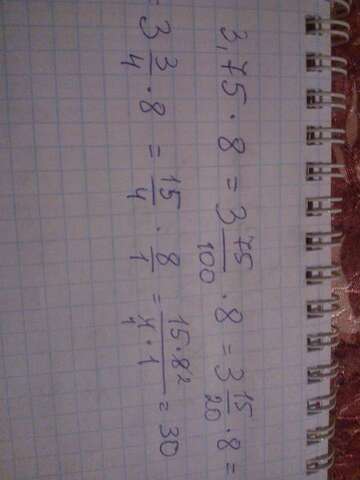 3,75 · 8 = 3 75/100 · 8 = 3 15/20 · 8 =
= 3 3/4 · 8 = 15/4 · 8/1 = 15 · 8² / 4₁ · 1 = 30